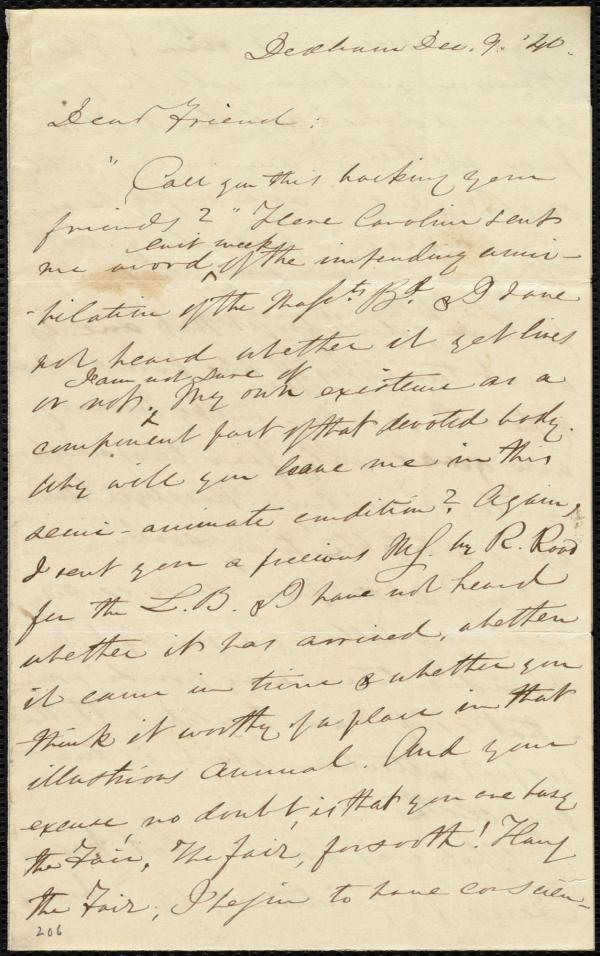 Dedham Dec. 9. '40.
Dear Friend:
"Call you this backing your
friends?" Here Caroline sent
me word last week of the impending anni-
-hilation of the Mass.tts Bd. & I have
not heard whether it yet lives
or not. I am not sure of My own existence as a
component part of that devoted body.
Why will you leave me in this
semi-animate condition? Again,
I sent you a precious MS. by R. Road
for the L. B. & I have not heard
whether it has arrived, whether
it came in time & whether you
think it worthy of a place in that
illustrious annual. And your
excuse, no doubt, is that you are busy
the Fair, The fair, forsooth! Hang
the Fair, I begin to have conscien-
206